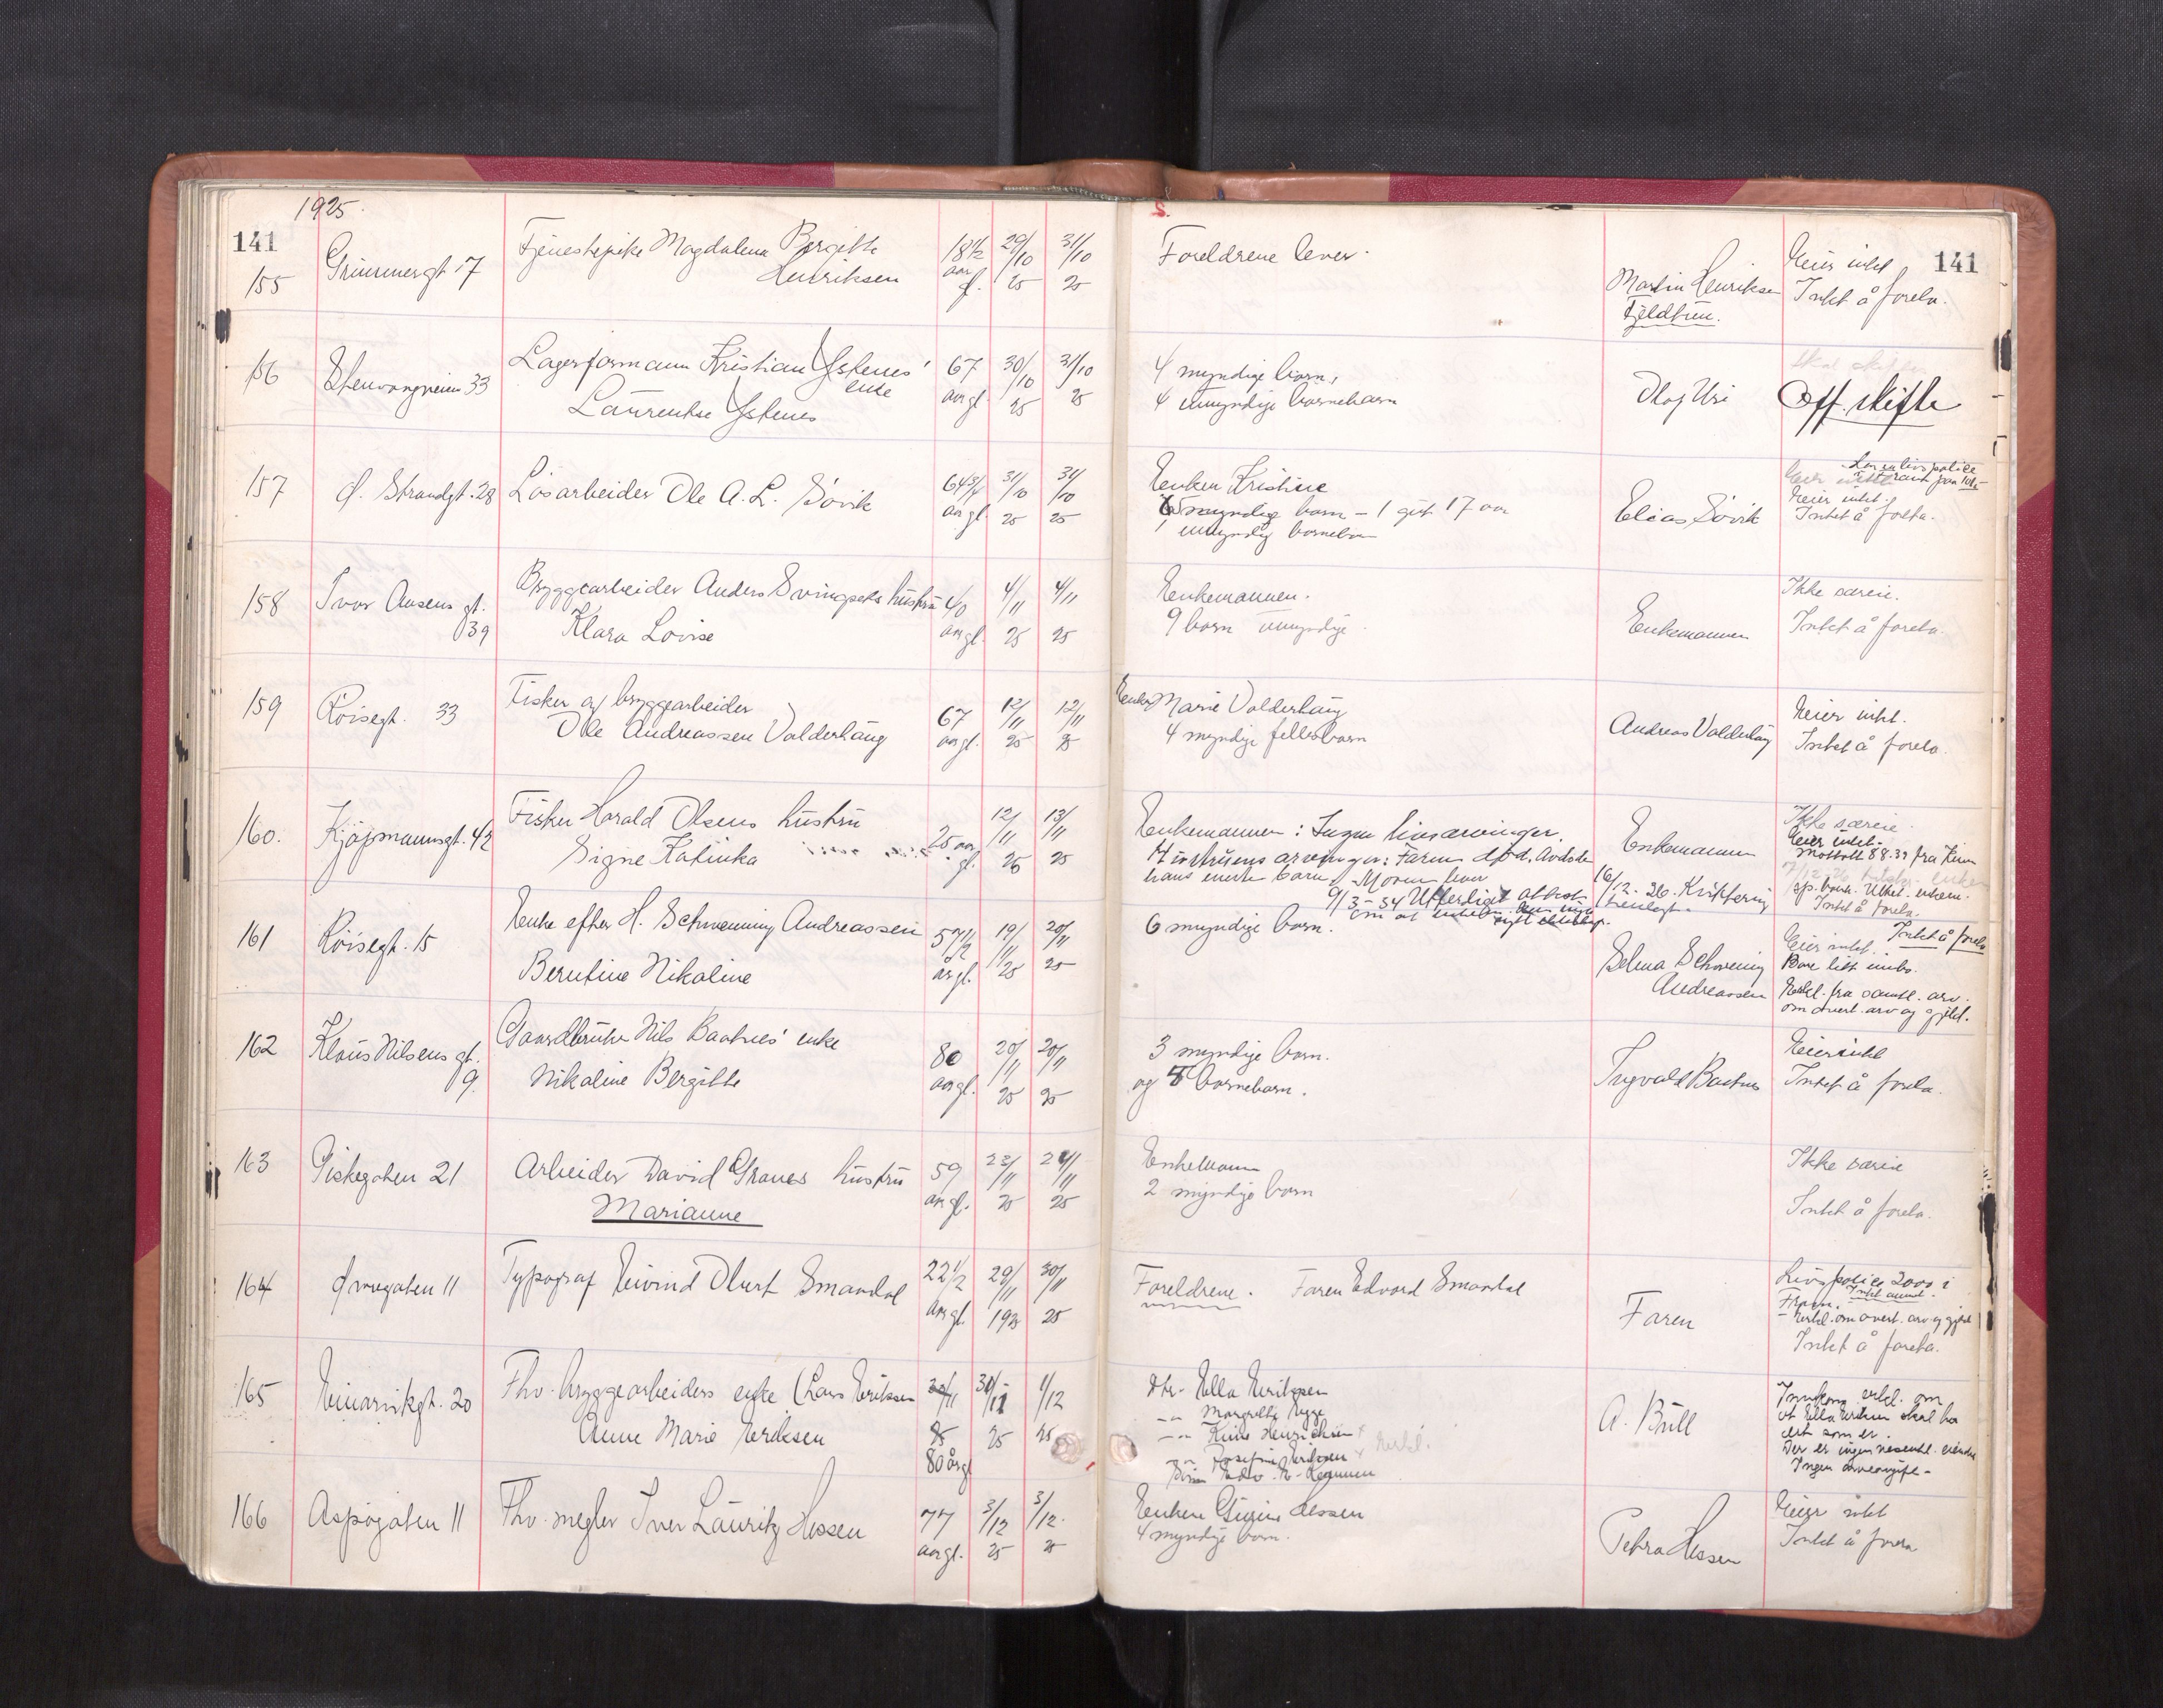 1925.
141
155 Grimmergt 17 Tjenestepike Magdalena Bergitte 18½ 29/10 31/10
Henriksen aar gl. 25 25
Foreldrene lever.
Martin Henriksen
Fjeldtun.
Eier intet 141
Intet å foreta.
156 Stenvaagveien 33 Lagerformann Kristian Ystenes' 67 30/10 31/10
enke aar gl. 25 25
Laurentse Ystenes
4 myndige barn,
4 umyndige barnebarn
Olaf Uri
Off. skifte
157 Ø. Strandgt. 28 Løsarbeider Ole A. L. Søvik 64¾ 31/10 31/10
aar gl. 25 25
Enken Kristine
myndige barn - 1 gut 17 aar
1 umyndig barnebarn
Elias Søvik
Eier intet.
Intet å foreta.
158 Ivar Aasens gt. Bryggearbeider Anders hustru 40 4/11 4/11
39 Klara Lovise aar gl. 25 25
Enkemannen.
9 barn umyndige.
Enkemannen
Ikke særeie.
Intet å foreta.
159 Røisegt. 33 Fisker og bryggearbeider 67 12/11 12/11
Ole Andreassen Valderhaug aar gl. 25 25
Enken Marie Valderhaug
4 myndige fellesbarn
Andreas Valderhaug
Eier intet.
Intet å foreta.
160. Kjøpmannsgt. 42 Fisker Harald Olsens hustru 25 aar 12/11 13/11
Signe Katinka gl. 25 25
Enkemannen: Ingen livsarvinger.
hustruens arvinger: Faren død. Avdøde
hans eneste barn. Moren lever
9/3-34 Utferdiget attest
Enkemannen
16/12-26.
Ikke særeie.
Eier intet.
Mottatt 88.39 fra
Intet å foreta.
161 Røisegt. 15 Enke efter H. Schwenning Andreassen 57½ 19/11 20/11
Berntine Nikoline år gl. 25 25
6 myndige barn.
Selma Schwening
Andreassen
Intet å foreta
Eier intet.
Bare litt innbo.
Erkl. fra samtl. arv.
om overt. arv og gjeld.
162 Klaus Nilsens gt. Gaardbruker Nils Baatnes' enke 80 20/11 20/11
9. Nikoline Bergitte aar gl. 25 25
3 myndige barn.
og barnebarn.
Ingvald Baatnes
Eier intet
Intet å foreta.
163 Giskegaten 21 Arbeider David Granes hustru 59 23/11 24/11
Marianne aar gl. 25 25
Enkemann
2 myndige barn
Ikke særeie
Intet å foreta.
164 Øwregaten 11 Typograf Eivind Olert Smaadal 22½ 29/11 30/11
aar gl. 1925 25
Foreldrene. Faren Edvard Smaadal
Faren
Livspolice 2000 i
Fram. Intet annet.
Erkl. om overt. arv og gjeld
Intet å foreta.
165 Einarvikgt. 20 Fhv. bryggearbeiders enke (Lars Eriksen 30/11 1/12
Anne Marie Eriksen 25 25
80 år gl
Dtr. Ella Eriksen
-"- Margrethe
-"- Henriksen
-"- Josefine Eriksen
A. Bull
Innkom erkl. om
at Ella Eriksen skal ha
det som er.
Der er ingen vesentl. eiendeler
Ingen arveavgift.
166 Aspøgaten 11 Fhv. megler Iver Lauritz Hessen 77 3/12 3/12.
aar gl. 25 25
Enken Hessen
4 myndige barn.
Petra Hessen
Eier intet
Intet å foreta